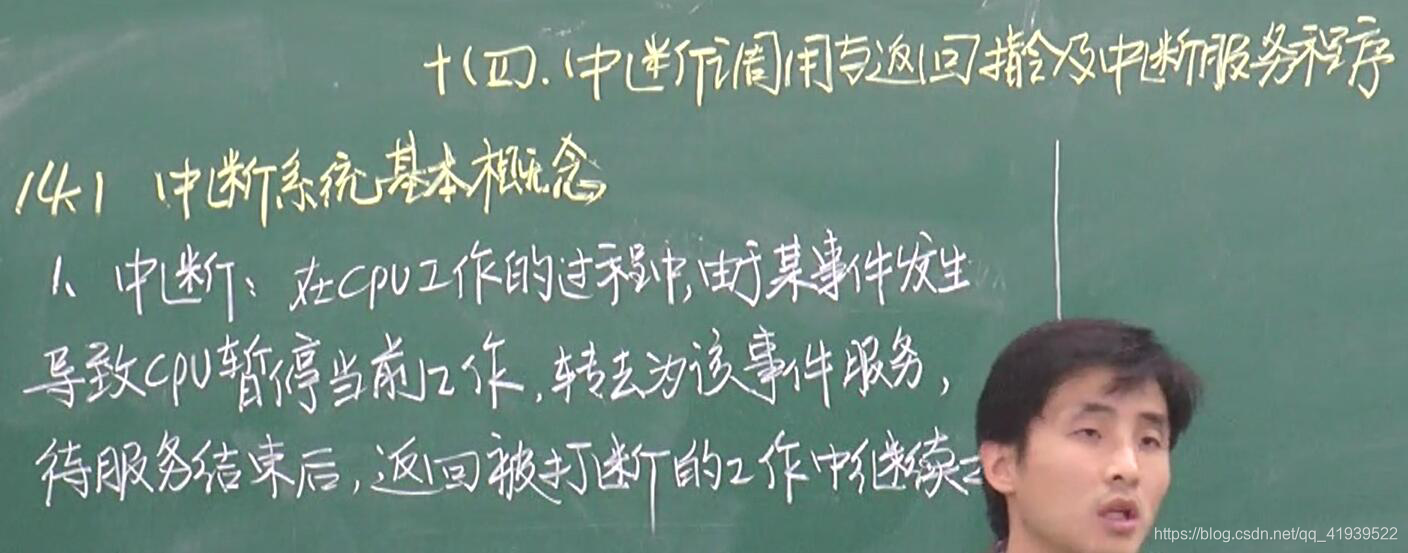 十四.中断调用与返回指令及中断服务程序
14.1 中断系统基本概念
1、中断:在CPU工作的过程中,由于某事件发生
导致CPU暂停当前工作,转去为该事件服务,
待服务结束后,返回被打断的工作中继续
https://blog.csdn.net/qq_41939522